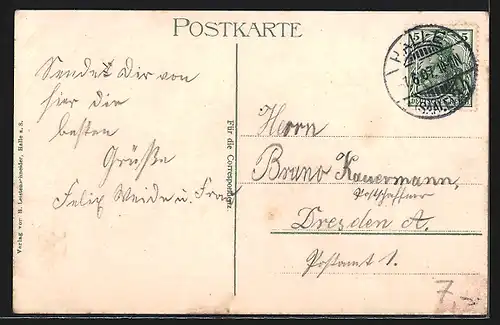 POSTKARTE
Sendet Dir von
hier die
besten
Grüße
Felix Weide u. Frau
Verlag von
Halle a. S.
Für die Correspondenz
HALLE
5
Herrn
Bruno Kauermann,
Postschaffner
Dresden A.
Postamt 1.
7.-